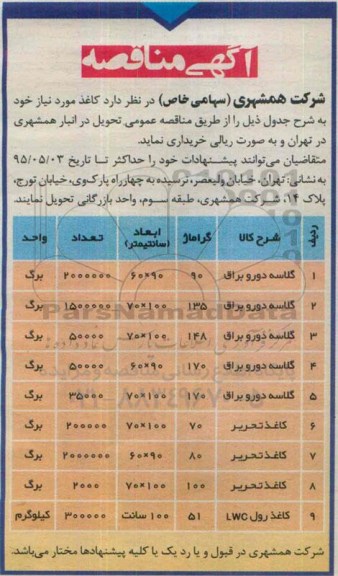 آگهی مناقصه
شرکت همشهری (سهامی خاص) در نظر دارد کاغذ مورد نیاز خود
به شرح جدول ذیل را از طریق مناقصه عمومی تحویل در انبار همشهری
در تهران و به صورت ریالی خریداری نماید.
متقاضیان می‌توانند پیشنهادات خود را حداکثر تا تاریخ ۹۵/۰۵/۰۳
به نشانی: تهران، خیابان ولیعصر، نرسیده به چهارراه پارک‌وی، خیابان تورج،
پلاک ۱۴، شرکت همشهری، طبقه سوم، واحد بازرگانی تحویل نمایند.
ردیف شرح کالا گراماژ ابعاد (سانتیمتر) تعداد واحد
۱ گلاسه دورو براق ۹۰ ۶۰×۹۰ ۲۰۰۰۰۰۰ برگ
۲ گلاسه دورو براق ۱۳۵ ۷۰×۱۰۰ ۱۵۰۰۰۰۰ برگ
۳ گلاسه دورو براق ۱۴۸ ۷۰×۱۰۰ ۵۰۰۰۰ برگ
۴ گلاسه دورو براق ۱۷۰ ۶۰×۹۰ ۵۰۰۰۰ برگ
۵ گلاسه دورو براق ۱۷۰ ۷۰×۱۰۰ ۳۵۰۰۰ برگ
۶ کاغذ تحریر ۷۰ ۷۰×۱۰۰ ۲۰۰۰۰۰ برگ
۷ کاغذ تحریر ۸۰ ۶۰×۹۰ ۲۰۰۰۰۰۰ برگ
۸ کاغذ تحریر ۱۰۰ ۷۰×۱۰۰ ۲۰۰۰ برگ
۹ کاغذ رول LWC ۵۱ ۱۰۰ سانت ۳۰۰۰۰۰ کیلوگرم
شرکت همشهری در قبول و یا رد یک یا کلیه پیشنهادها مختار می‌باشد.
ParsNamadData